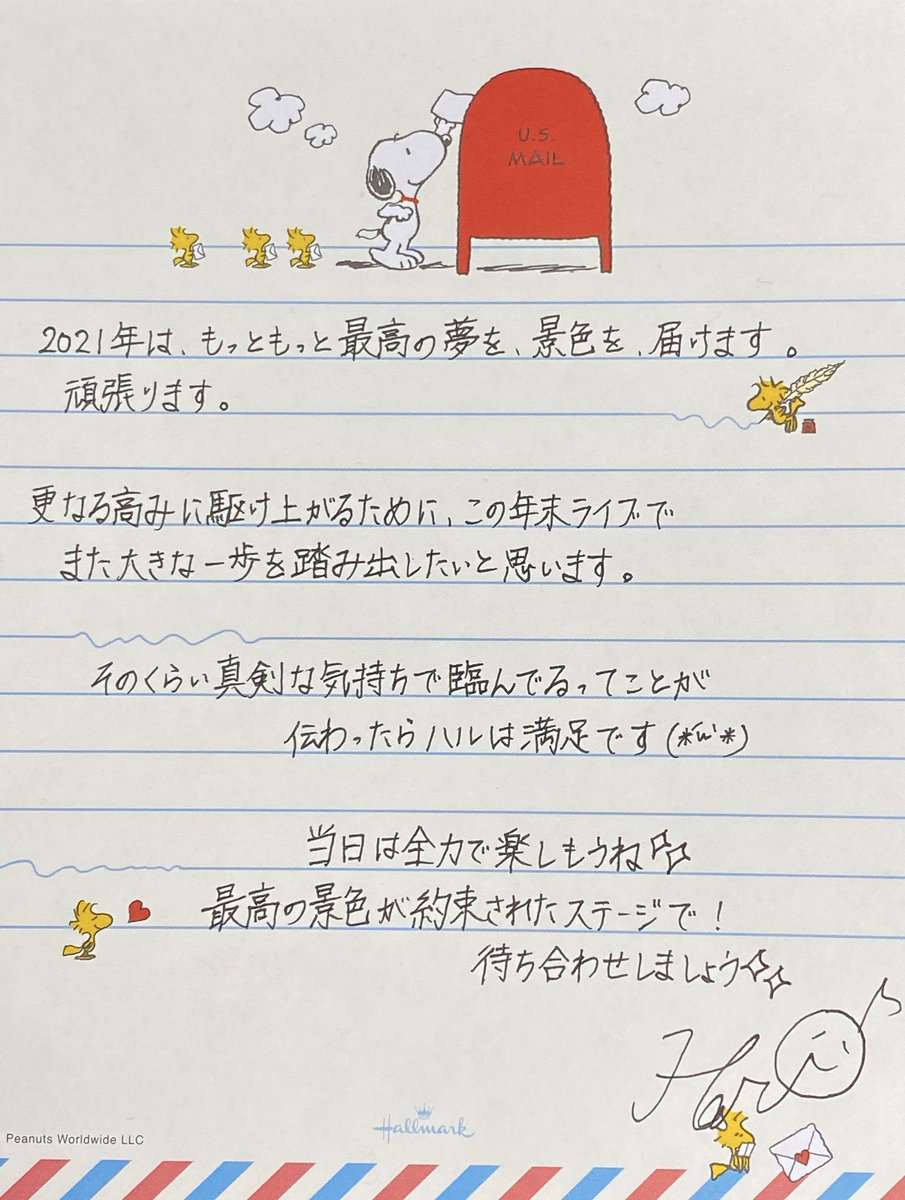 U.S.
MAIL
2021年は、もっともっと最高の夢を、景色を、届けます。
頑張ります。
更なる高みに駆け上がるために、この年末ライブで
また大きな一歩を踏み出したいと思います。
そのくらい真剣な気持ちで臨んでるってことが
伝わったらハルは満足です(*'ω'*)
当日は全力で楽しもうね✨
最高の景色が約束されたステージで!
待ち合わせしましょう✨
Haru
Hallmark
Peanuts Worldwide LLC